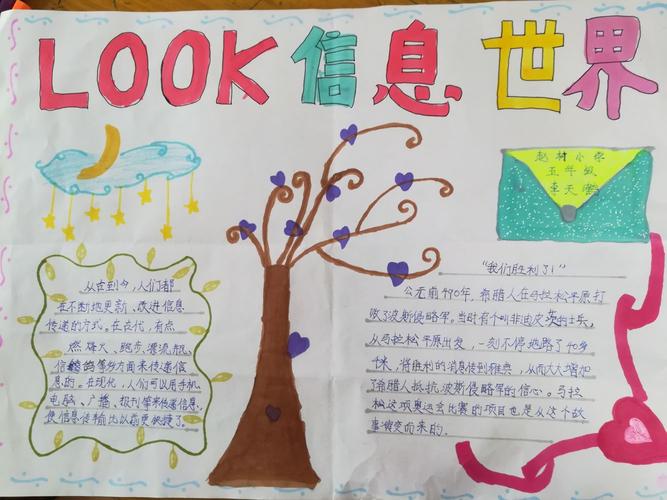 LOOK 信息世界
赵村小学
五年级
李天
从古到今，人们都
在不断地更新、改进信息
传递的方式。在古代，有点
燃烽火、跑步、漂流瓶、
信鸽等多方面来传递信
息的。在现代，人们可以用手机、
电脑、广播、报刊等来传递信息，
使信息传输比以前更快捷了。
“我们胜利了！”
公元前490年，希腊人在马拉松平原打
败了波斯侵略军。当时有个叫非迪皮茨的士兵，
从马拉松平原出发，一刻不停地跑了40多
千米，将胜利的消息传到雅典，从而大大增加
了希腊人抵抗波斯侵略军的信心。马拉
松这项奥运会比赛的项目也是从这个故
事演变而来的。